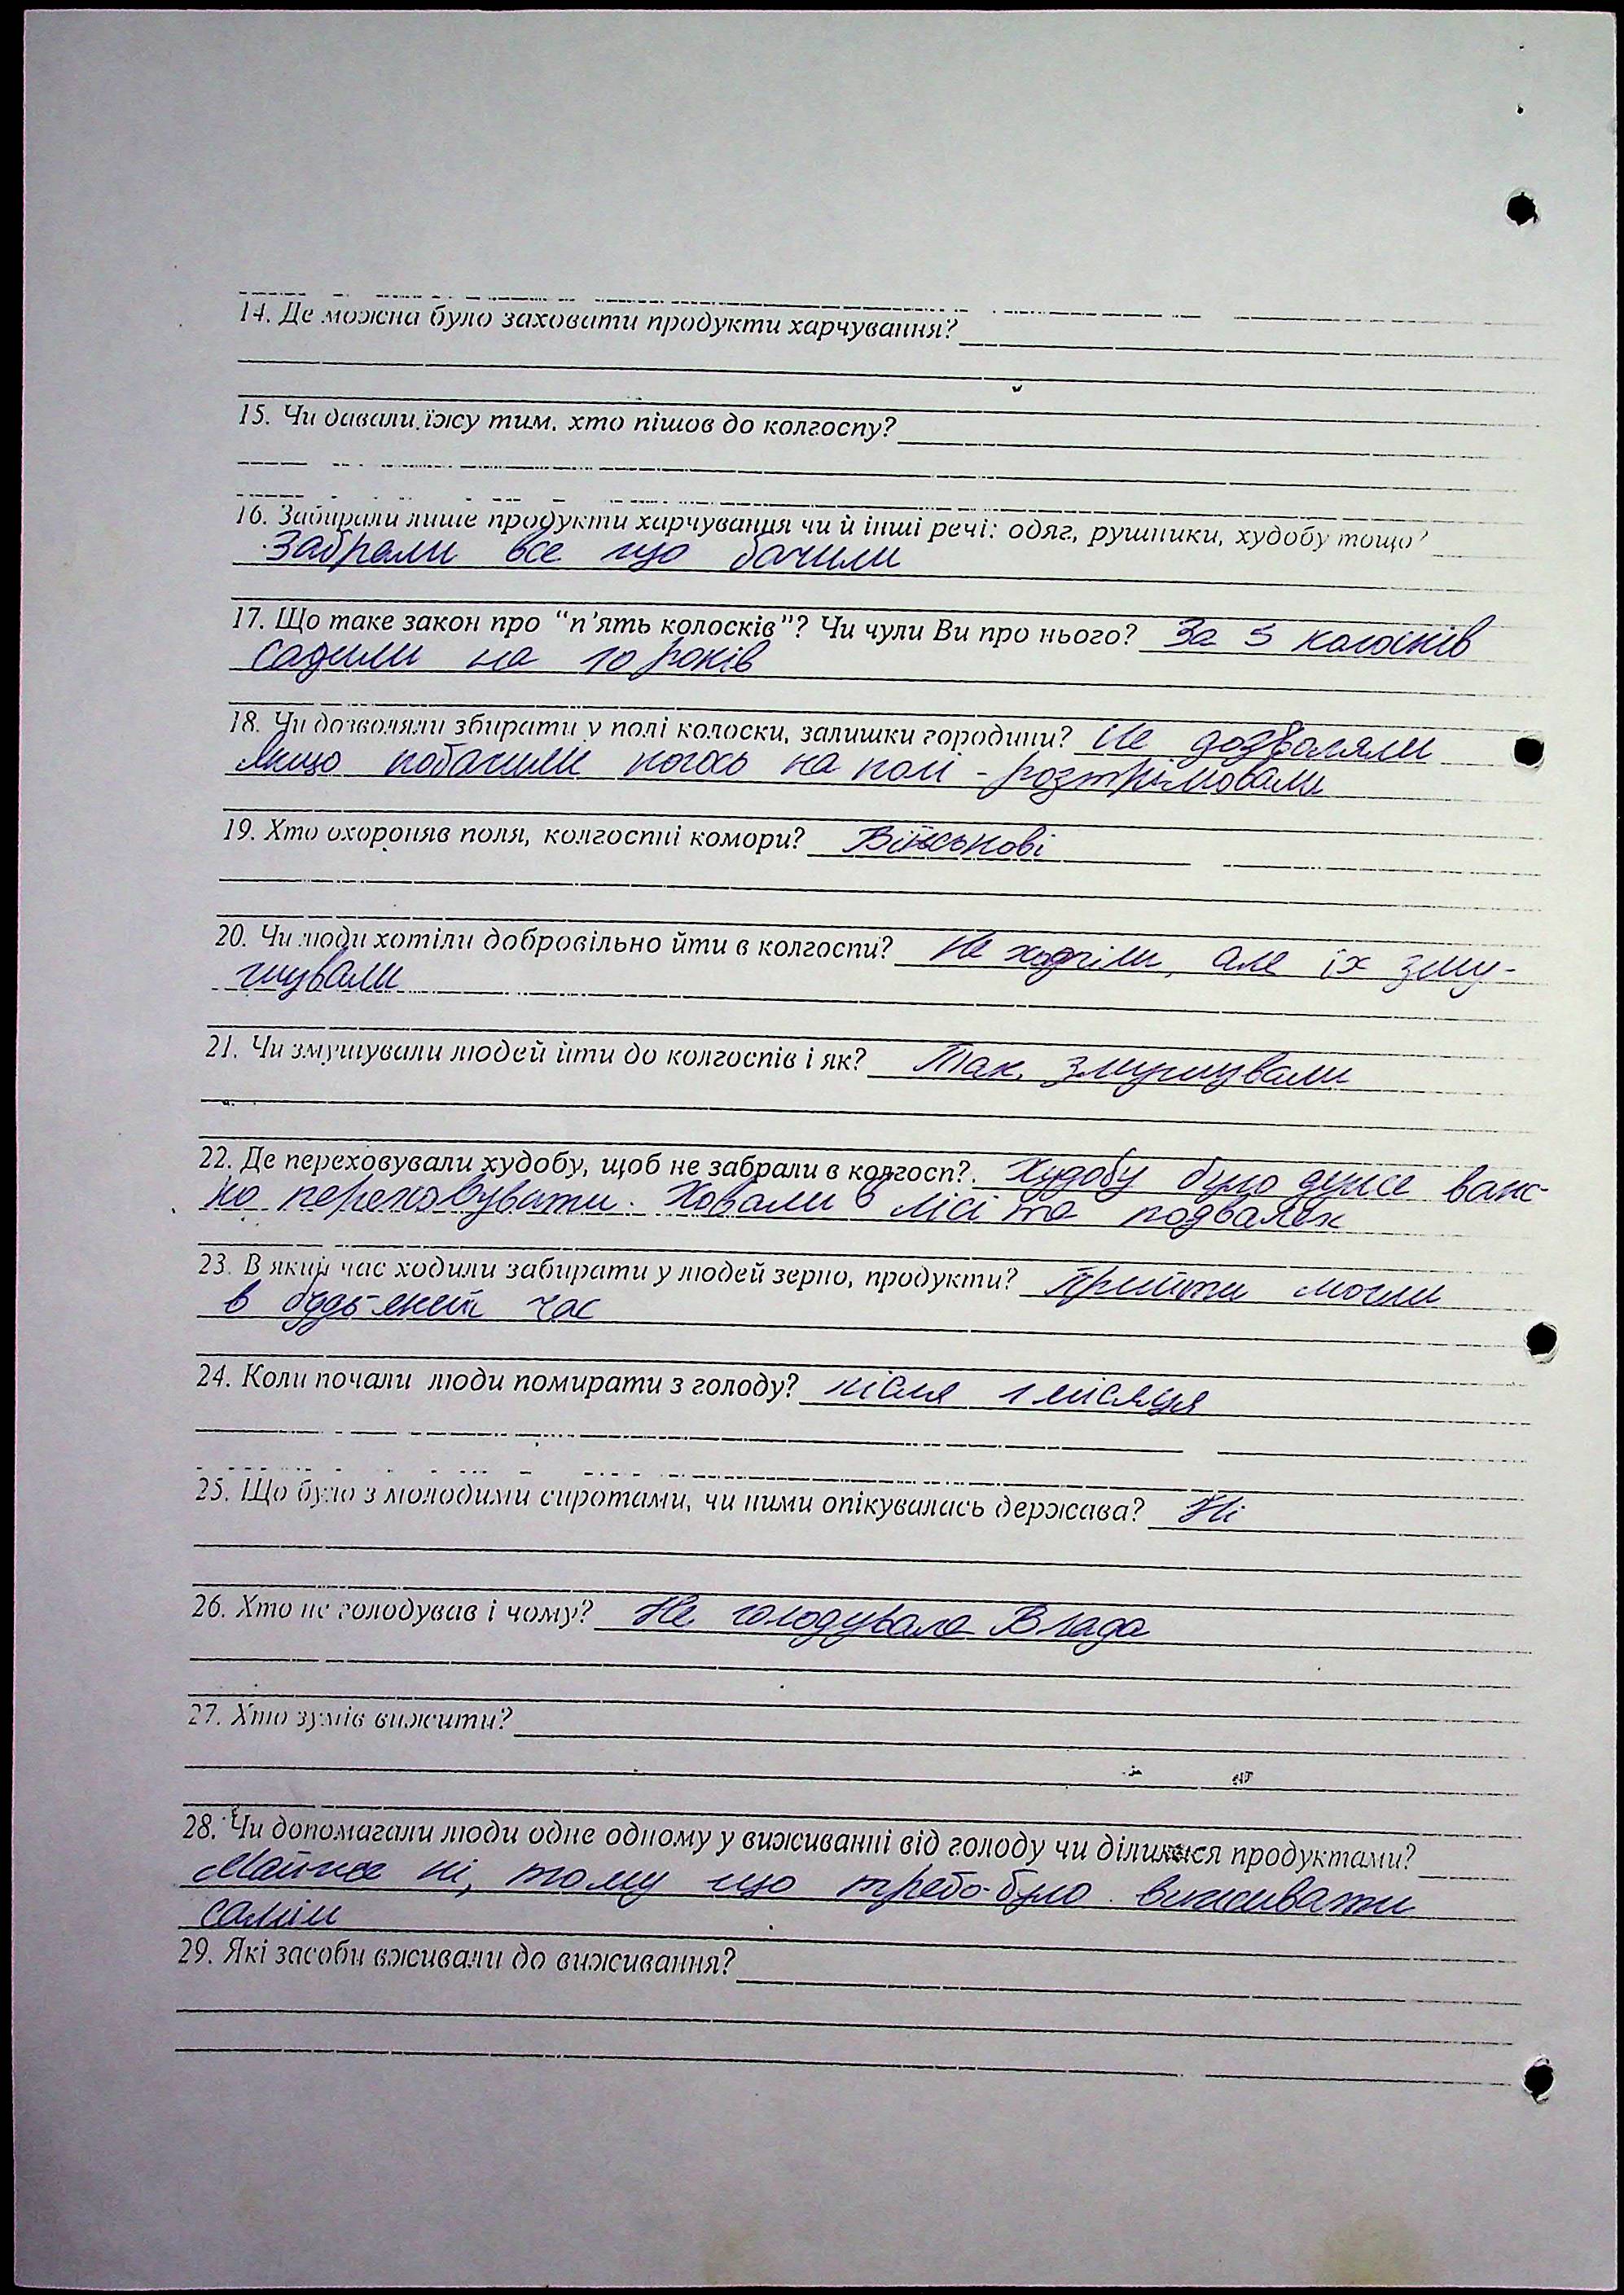 14. Де можна було заховати продукти харчування?
15. Чи давали їжу тим, хто пішов до колгоспу?
16. Забирали лише продукти харчування чи й інші речі: одяг, рушники, худобу тощо?
Забрали все що бачили
17. Що таке закон про "п'ять колосків"? Чи чули Ви про нього? За 5 колосків
садили на 10 років
18. Чи дозволяли збирати у полі колоски, залишки городини? Не дозволяли
якщо побачили когось на полі - розстрілювали
19. Хто охороняв поля, колгоспні комори? Військові
20. Чи люди хотіли добровільно йти в колгоспи? Не хотіли, але їх зму-
шували
21. Чи змушували людей йти до колгоспів і як? Так, змушували
22. Де переховували худобу, щоб не забрали в колгосп? Худобу було дуже важ-
ко переховувати. Ховали в лісі та подвалах
23. В який час ходили забирати у людей зерно, продукти? Прийти могли
в будь-який час
24. Коли почали люди помирати з голоду? після 1 місяця
25. Що було з молодими сиротами, чи ними опікувалась держава? Ні
26. Хто не голодував і чому? Не голодувала Влада
27. Хто зумів вижити?
28. Чи допомагали люди одне одному у виживанні від голоду чи ділилися продуктами?
Майже ні, тому що треба було виживати
самім
29. Які засоби вживали до виживання?